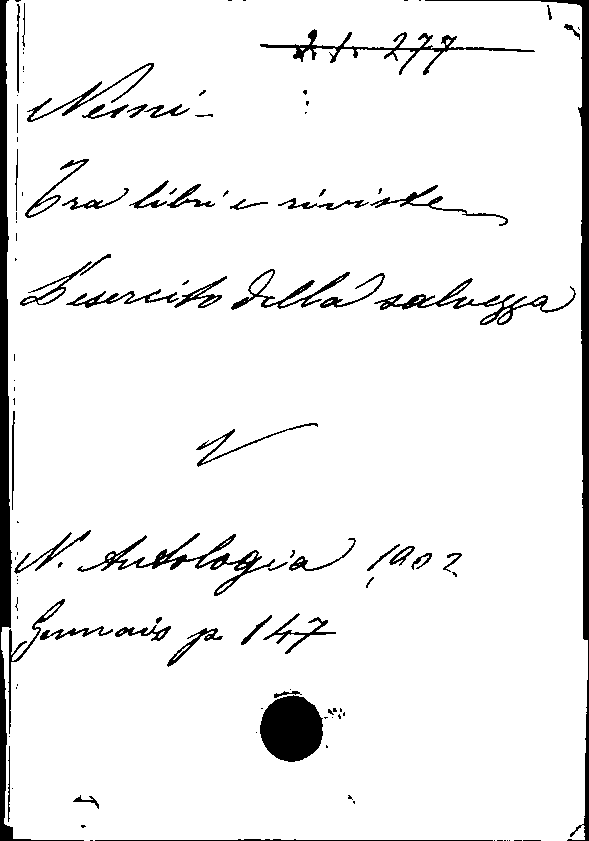 2. 1. 277
Nemi -
Tra libri e riviste
L'esercito della salvezza
V
N. Antologia 1902
Gennaio p. 147